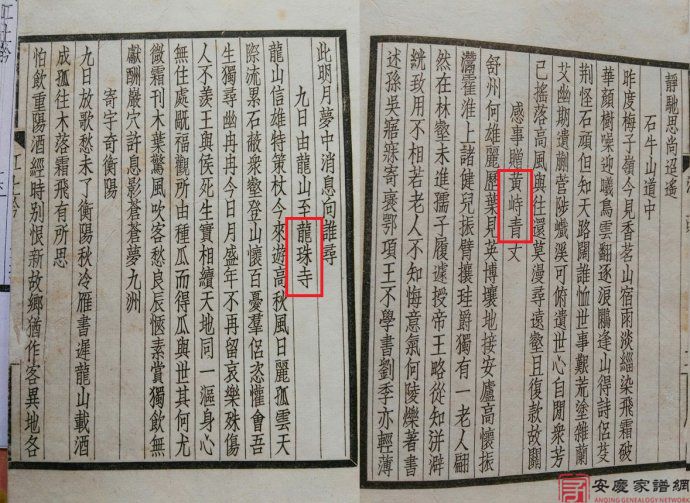 靜馳思尚迢遙
石牛山道中
昨度梅子嶺今見香茗山宿雨淡經染飛霜破
華顏樹噪迎曦鳥雲翻逐浪鵬逢山得詩侶芟
荆怪石頑但知天路闢誰恤世事艱荒塗雜蘭
艾幽期遺菅陟巘溪可俯遺世心自閒衆芳
已搖落高風與往還莫漫尋遠壑且復款故關
感事贈黃峙青丈
舒州何雄麗歷葉見英博壤地接安廬高懷振
灊霍淮上諸健兒振臂攘珪爵獨有一老人翩
然在林壑未進孺子履遽授帝王略從知洴澼
絖致用不相若老人不知悔意氣何陵爍著書
述孫吳寤寐寄褒鄂項王不學書劉季亦輕薄
此明月夢中消息向誰尋
九日由龍山至龍珠寺
龍山信雄特策杖今來遊高秋風日麗孤雲天
際流累石蔽衆壑登山懷百憂羣侶恣懽會吾
生獨尋幽冉冉今日月盛年不再留哀樂殊傷
人不羨王與侯死生實相續天地同一漚身心
無住處旤福觀所由種瓜而得瓜與世其何尤
微霜刊木葉驚風吹客愁良辰愜素賞獨飲無
獻酬巖穴許息影蒼蒼夢九洲
寄宇奇衡陽
九日放歌愁未了衡陽秋冷雁書遲龍山載酒
成孤往木落霜飛有所思
怕飲重陽酒經時别恨新故鄉猶作客異地各
安慶家譜網
ANQING GENEALOGY NETWORK